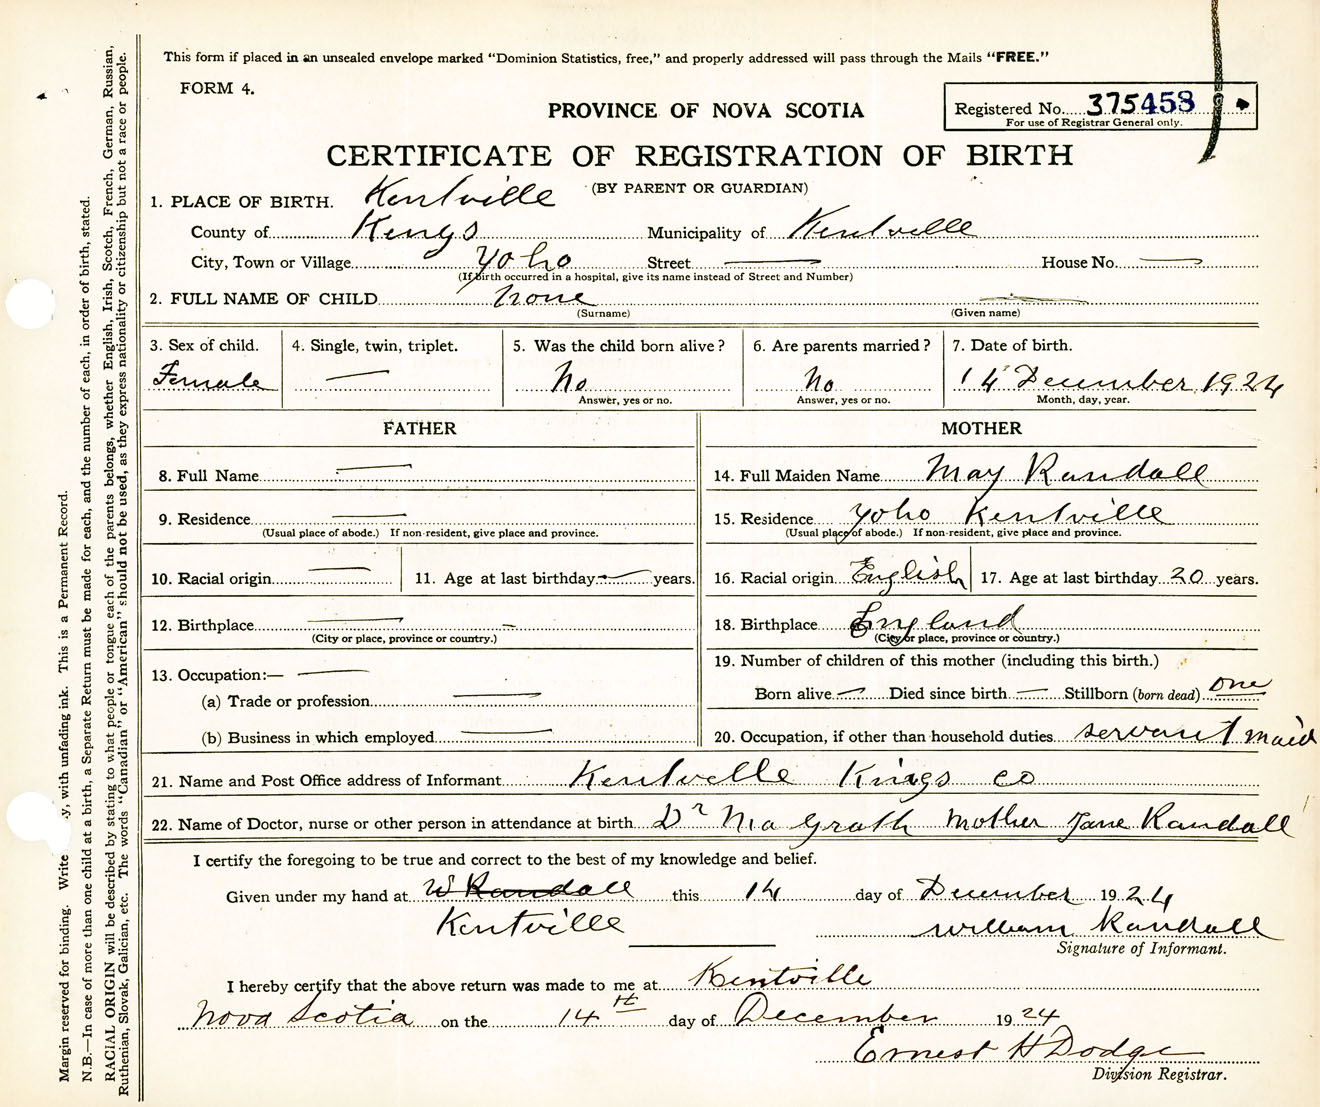 This form if placed in an unsealed envelope marked "Dominion Statistics, free," and properly addressed will pass through the Mails "FREE."
FORM 4.
PROVINCE OF NOVA SCOTIA
Registered No. 375458
For use of Registrar General only.
CERTIFICATE OF REGISTRATION OF BIRTH
(BY PARENT OR GUARDIAN)
1. PLACE OF BIRTH. Kentville
County of Kings Municipality of Kentville
City, Town or Village Yoho Street — House No. —
(If birth occurred in a hospital, give its name instead of Street and Number)
2. FULL NAME OF CHILD none —
(Surname) (Given name)
3. Sex of child. 4. Single, twin, triplet. 5. Was the child born alive? 6. Are parents married? 7. Date of birth.
Female — No No 14 December 1924
Answer, yes or no. Answer, yes or no. Month, day, year.
FATHER
8. Full Name —
9. Residence —
(Usual place of abode.) If non-resident, give place and province.
10. Racial origin — 11. Age at last birthday — years.
12. Birthplace — –
(City or place, province or country.)
13. Occupation:— —
(a) Trade or profession —
(b) Business in which employed —
MOTHER
14. Full Maiden Name May Randall
15. Residence Yoho Kentville
(Usual place of abode.) If non-resident, give place and province.
16. Racial origin English 17. Age at last birthday 20 years.
18. Birthplace England
(City or place, province or country.)
19. Number of children of this mother (including this birth.)
Born alive — Died since birth — Stillborn (born dead) one
20. Occupation, if other than household duties servant maid
21. Name and Post Office address of Informant Kentville Kings co
22. Name of Doctor, nurse or other person in attendance at birth Dr Ma Grath Mother Jane Randall
I certify the foregoing to be true and correct to the best of my knowledge and belief.
Given under my hand at W Randall this 14 day of December 1924
Kentville William Randall
Signature of Informant.
I hereby certify that the above return was made to me at Kentville
Nova Scotia on the 14th day of December 1924
Ernest H Dodge
Division Registrar.
Margin reserved for binding. Write y, with unfading ink. This is a Permanent Record.
N.B.—In case of more than one child at a birth, a Separate Return must be made for each, and the number of each, in order of birth, stated.
RACIAL ORIGIN will be described by stating to what people or tongue each of the parents belongs, whether English, Irish, Scotch, French, German, Russian,
Ruthenian, Slovak, Galician, etc. The words "Canadian" or "American" should not be used, as they express nationality or citizenship but not a race or people.